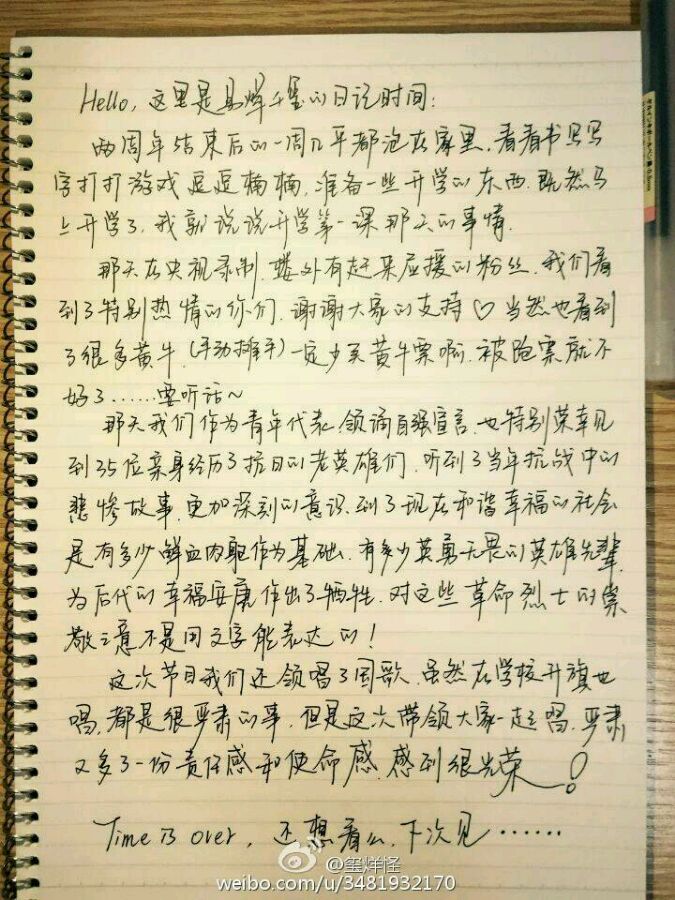 Hello, 这里是易烊千玺的日记时间:
两周年结束后的一周几乎都泡在家里, 看看书写写
字打打游戏逗逗楠楠, 准备一些开学的东西. 既然马
上开学了, 我就说说开学第一课那天的事情.
那天在央视录制, 楼外有赶来应援的粉丝, 我们看
到了特别热情的你们, 谢谢大家的支持♡ 当然也看到
了很多黄牛, (手动摊手) 一定少买黄牛票啊, 被跑票就不
好了……要听话~
那天我们作为青年代表领诵自强宣言, 也特别荣幸见
到35位亲身经历了抗日的老英雄们, 听到了当年抗战中的
悲惨故事, 更加深刻的意识到了现在和谐幸福的社会
是有多少鲜血肉躯作为基础, 有多少英勇无畏的英雄先辈
为后代的幸福安康作出了牺牲. 对这些革命烈士的崇
敬之意不是用文字能表达的!
这次节目我们还领唱了国歌, 虽然在学校升旗也
唱, 都是很严肃的事. 但是这次带领大家一起唱, 严肃
又多了一份责任感和使命感, 感到很光荣!
Time is over, 还想看么, 下次见……
@玺烊怪
weibo.com/u/3481932170